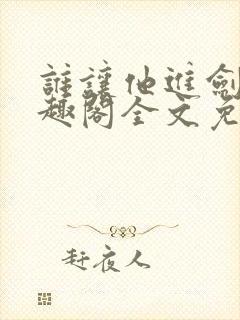 誰讓他進劍
趣閣全文免
赶夜人